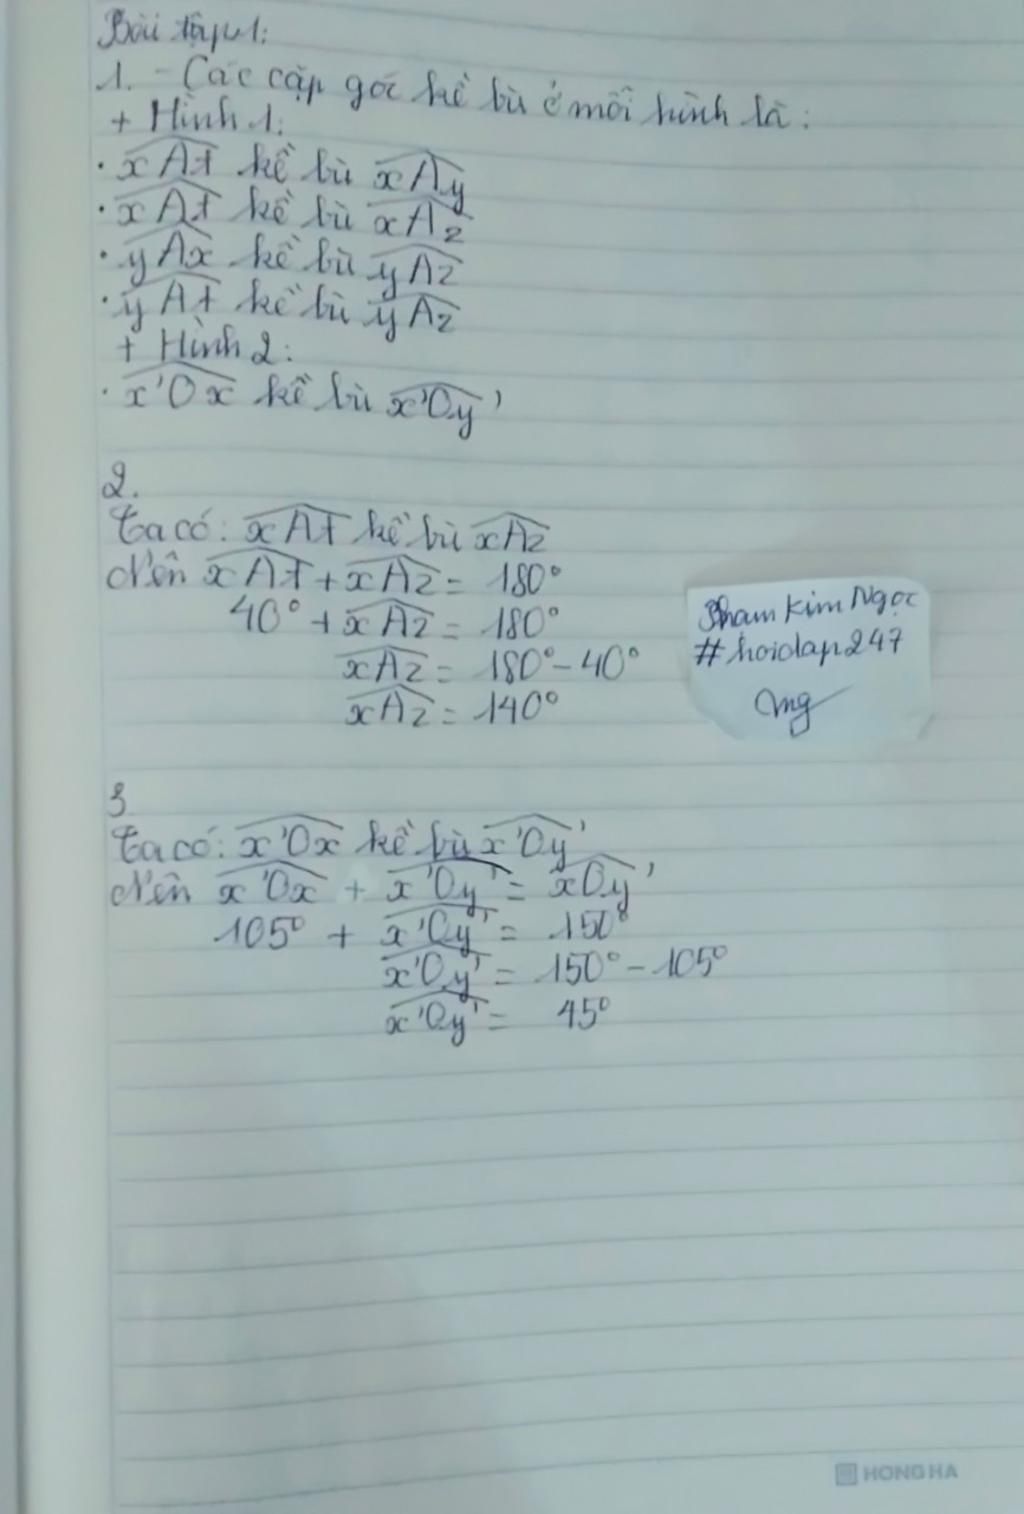 Bài tập 1:
1. - Các cặp góc kề bù ở mỗi hình là:
+ Hình 1:
· xAt kề bù xAy
· xAt kề bù xAz
· yAx kề bù yAz
· yAt kề bù yAz
+ Hình 2:
· x'Ox kề bù x'Oy'
2.
Ta có: xAt kề bù xAz
Nên xAt + xAz = 180°
40° + xAz = 180°
xAz = 180° - 40°
xAz = 140°
Pham Kim Ngọc
#hoidap247
3
Ta có: x'Ox kề bù x'Oy'
Nên x'Ox + x'Oy' = xOy'
105° + x'Oy' = 150°
x'Oy' = 150° - 105°
x'Oy' = 45°
HONG HA